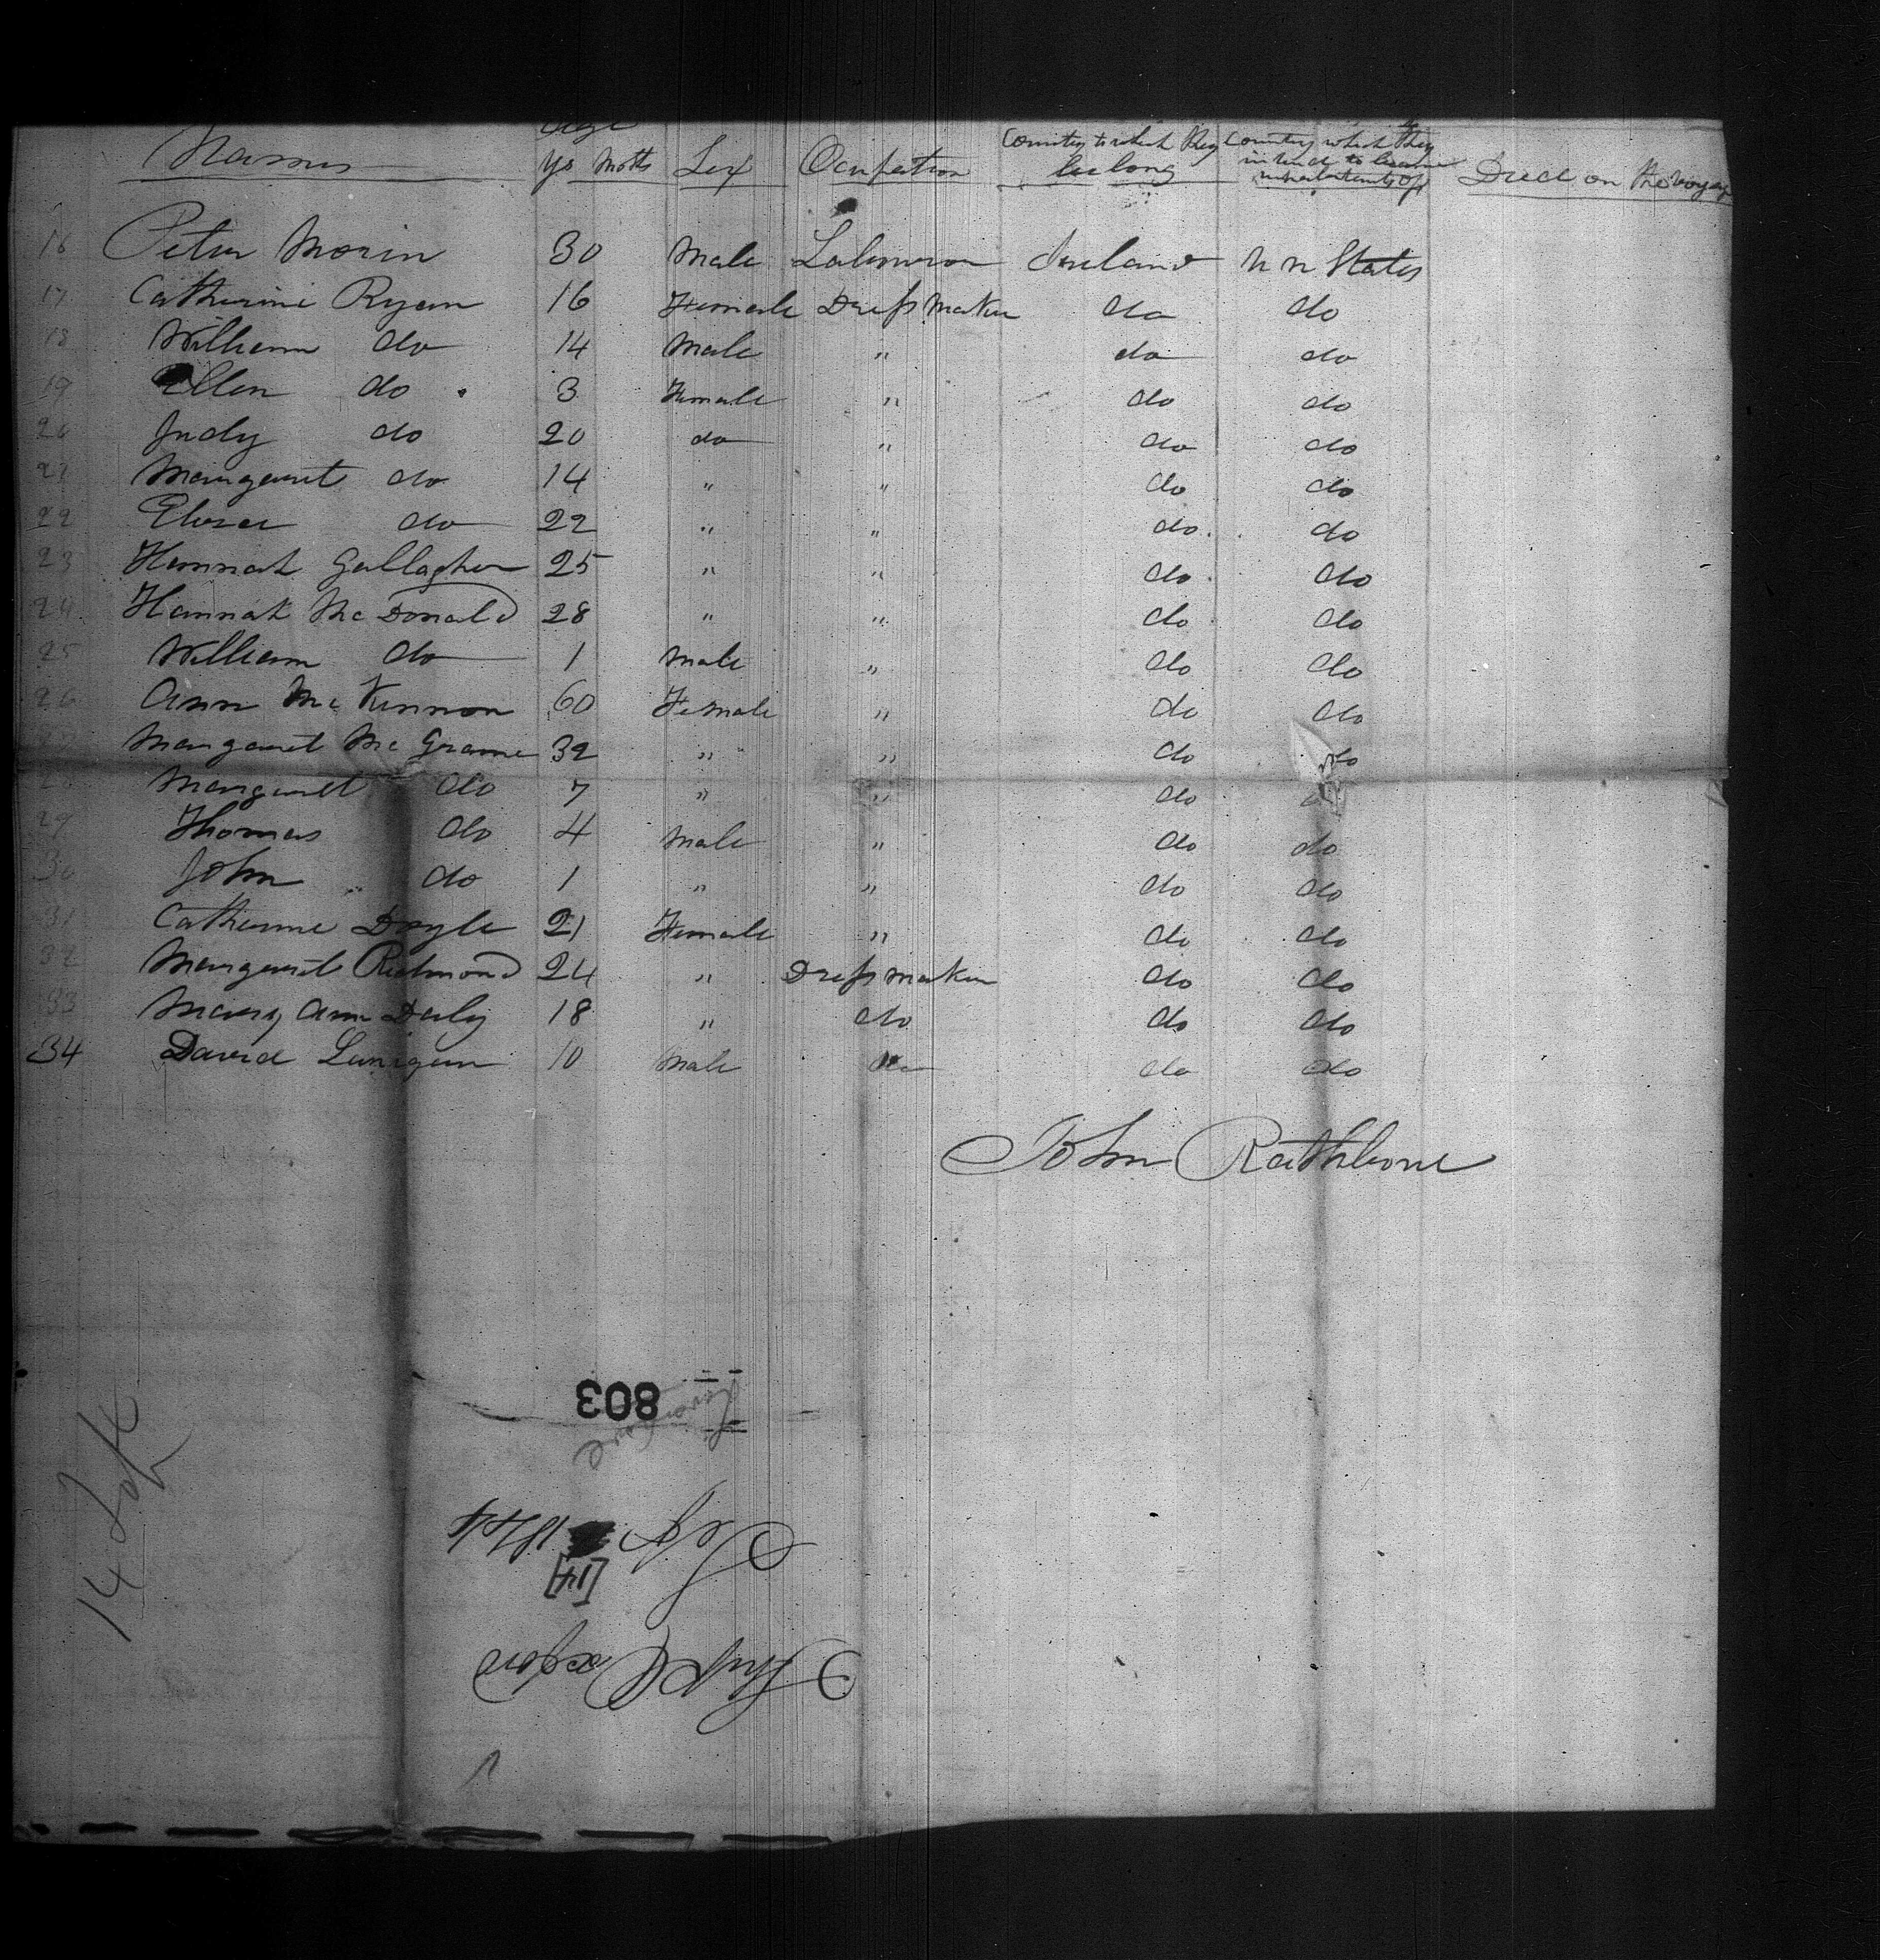 Age
Names yrs Moths Sex Ocupation Country to which they belong Country which they intend to become inhabitants of Died on the voyage
16 Peter Morin 30 Male Labourer Ireland U n States
17 Catherine Ryan 16 Female Dress Maker do do
18 William do 14 Male " do do
19 Ellen do 3 Female " do do
20 Judy do 20 do " do do
21 Margaret do 14 " " do do
22 Eliza do 22 " " do do
23 Hannah Gallagher 25 " " do do
24 Hannah McDonald 28 " " do do
25 William do 1 Male " do do
26 Ann McKinnon 60 Female " do do
27 Margaret Mc Grame 32 " " do do
28 Margaret do 7 " " do do
29 Thomas do 4 Male " do do
30 John do 1 " " do do
31 Catherine Doyle 21 Female " do do
32 Margaret Redmond 24 " Dress maker do do
33 Mary Ann Daly 18 " do do do
34 David Lanigan 10 Male " do do
John Rathbone
803
14
[14] 1844
Ship Oxford